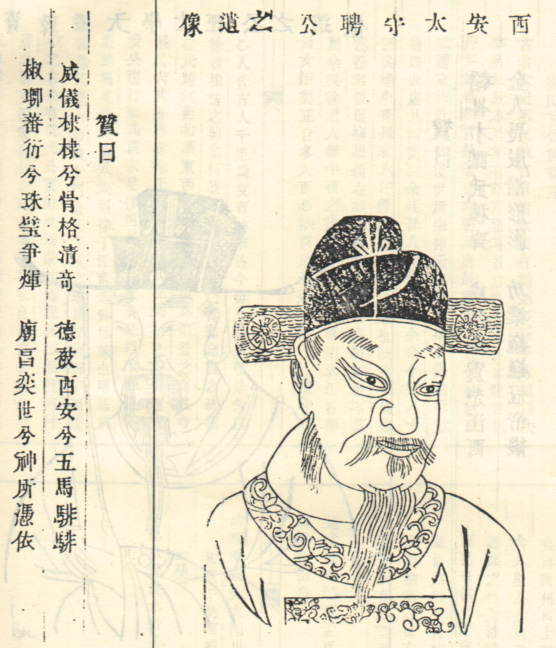 西安太守聘公之遺像
賛曰
威儀棣棣兮骨格清竒 德敷西安兮五馬騑騑
椒聊蕃衍兮珠璧爭輝 廟奕世兮神所憑依